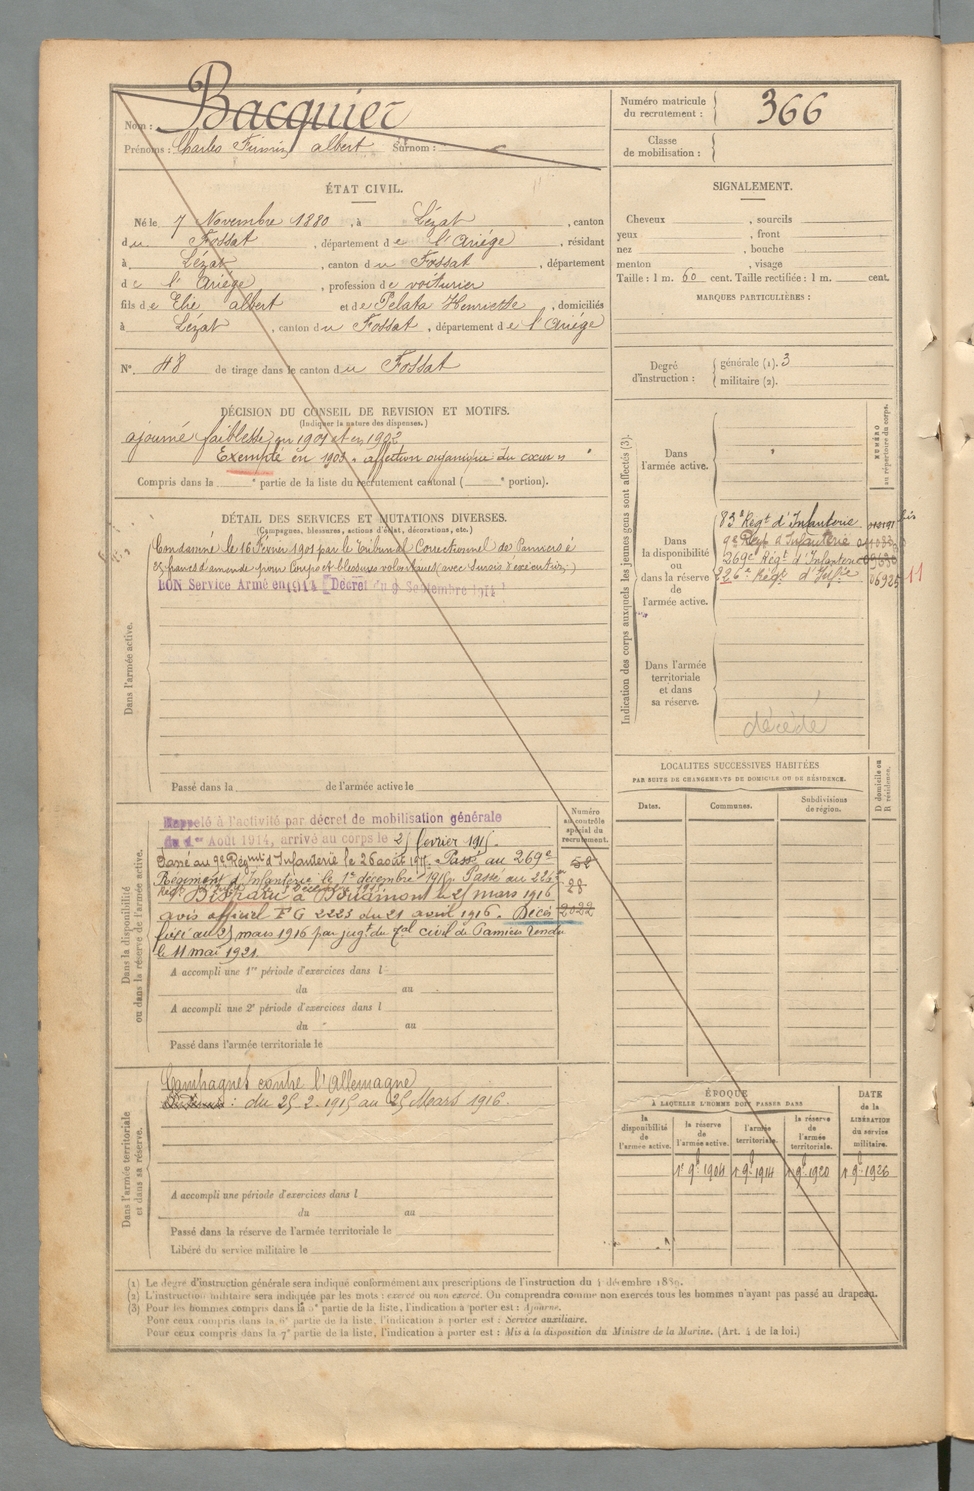 Nom : Bacquier
Prénoms : Charles Firmin albert Surnom :
Numéro matricule du recrutement : 366
Classe de mobilisation :
ÉTAT CIVIL.
Né le 7 Novembre 1880, à Lézat, canton
du Fossat, département de l'Ariége, résidant
à Lézat, canton du Fossat, département
de l'Ariége, profession de voiturier
fils de Elie albert et de Pelata Henriette, domiciliés
à Lézat, canton du Fossat, département de l'Ariége
N° 48 de tirage dans le canton du Fossat
SIGNALEMENT.
Cheveux , sourcils
yeux , front
nez , bouche
menton , visage
Taille : 1 m. 60 cent. Taille rectifiée : 1 m. cent.
MARQUES PARTICULIÈRES :
Degré d'instruction : générale (1). 3
militaire (2).
DÉCISION DU CONSEIL DE REVISION ET MOTIFS.
(Indiquer la nature des dispenses.)
ajourné faiblesse en 1901 et en 1902
Exempté en 1903 « affection organique du cœur »
Compris dans la e partie de la liste du recrutement cantonal ( e portion).
DÉTAIL DES SERVICES ET MUTATIONS DIVERSES.
(Campagnes, blessures, actions d'éclat, décorations, etc.)
Condamné le 16 Février 1901 par le Tribunal Correctionnel de Pamiers à
francs d'amende pour Coups et blessures volontaires (avec Sursis à l'exécution.)
BON Service Armé en 1914 Décret du 9 Septembre 1914
Dans l'armée active.
Passé dans la de l'armée active le
Indication des corps auxquels les jeunes gens sont affectés (3).
NUMÉRO au répertoire du corps.
Dans l'armée active.
Dans la disponibilité ou dans la réserve de l'armée active.
83e Régt d'Infanterie
9e Régt d'Infanterie
269e Régt d'Infanterie
226e Régt d'Infie 06925
11
Dans l'armée territoriale et dans sa réserve.
décédé
LOCALITES SUCCESSIVES HABITÉES
PAR SUITE DE CHANGEMENTS DE DOMICILE OU DE RÉSIDENCE.
Dates. Communes. Subdivisions de région. D domicile ou R résidence.
Dans la disponibilité ou dans la réserve de l'armée active.
Numéro au contrôle spécial du recrutement.
Rappelé à l'activité par décret de mobilisation générale
du 1er Août 1914, arrivé au corps le 25 février 1915.
Passé au 9e Régiment d'Infanterie le 26 août 1915. Passé au 269e
Régiment d'Infanterie le 1er décembre 1915. Passé au 226e
Disparu à Douaumont le 25 mars 1916
avis officiel F G 2225 du 21 avril 1916. Décès
fixé au 25 mars 1916 par jugt du Tal civil de Pamiers rendu
le 11 mai 1921.
A accompli une 1re période d'exercices dans l
du au
A accompli une 2e période d'exercices dans l
du au
Passé dans l'armée territoriale le
Dans l'armée territoriale et dans sa réserve.
Campagnes contre l'Allemagne
: du 25-2-1915 au 25 Mars 1916.
A accompli une période d'exercices dans l
du au
Passé dans la réserve de l'armée territoriale le
Libéré du service militaire le
ÉPOQUE
À LAQUELLE L'HOMME DOIT PASSER DANS
la disponibilité de l'armée active.
la réserve de l'armée active.
l'armée territoriale.
la réserve de l'armée territoriale.
DATE de la LIBÉRATION du service militaire.
1r 9e 1904 1r 9e 1914 1r 9e 1920 1r 9e 1926
(1) Le degré d'instruction générale sera indiqué conformément aux prescriptions de l'instruction du 4 décembre 1889.
(2) L'instruction militaire sera indiquée par les mots : exercé ou non exercé. Ou comprendra comme non exercés tous les hommes n'ayant pas passé au drapeau.
(3) Pour les hommes compris dans la 5e partie de la liste, l'indication à porter est : Ajourné.
Pour ceux compris dans la 6e partie de la liste, l'indication à porter est : Service auxiliaire.
Pour ceux compris dans la 7e partie de la liste, l'indication à porter est : Mis à la disposition du Ministre de la Marine. (Art. 4 de la loi.)